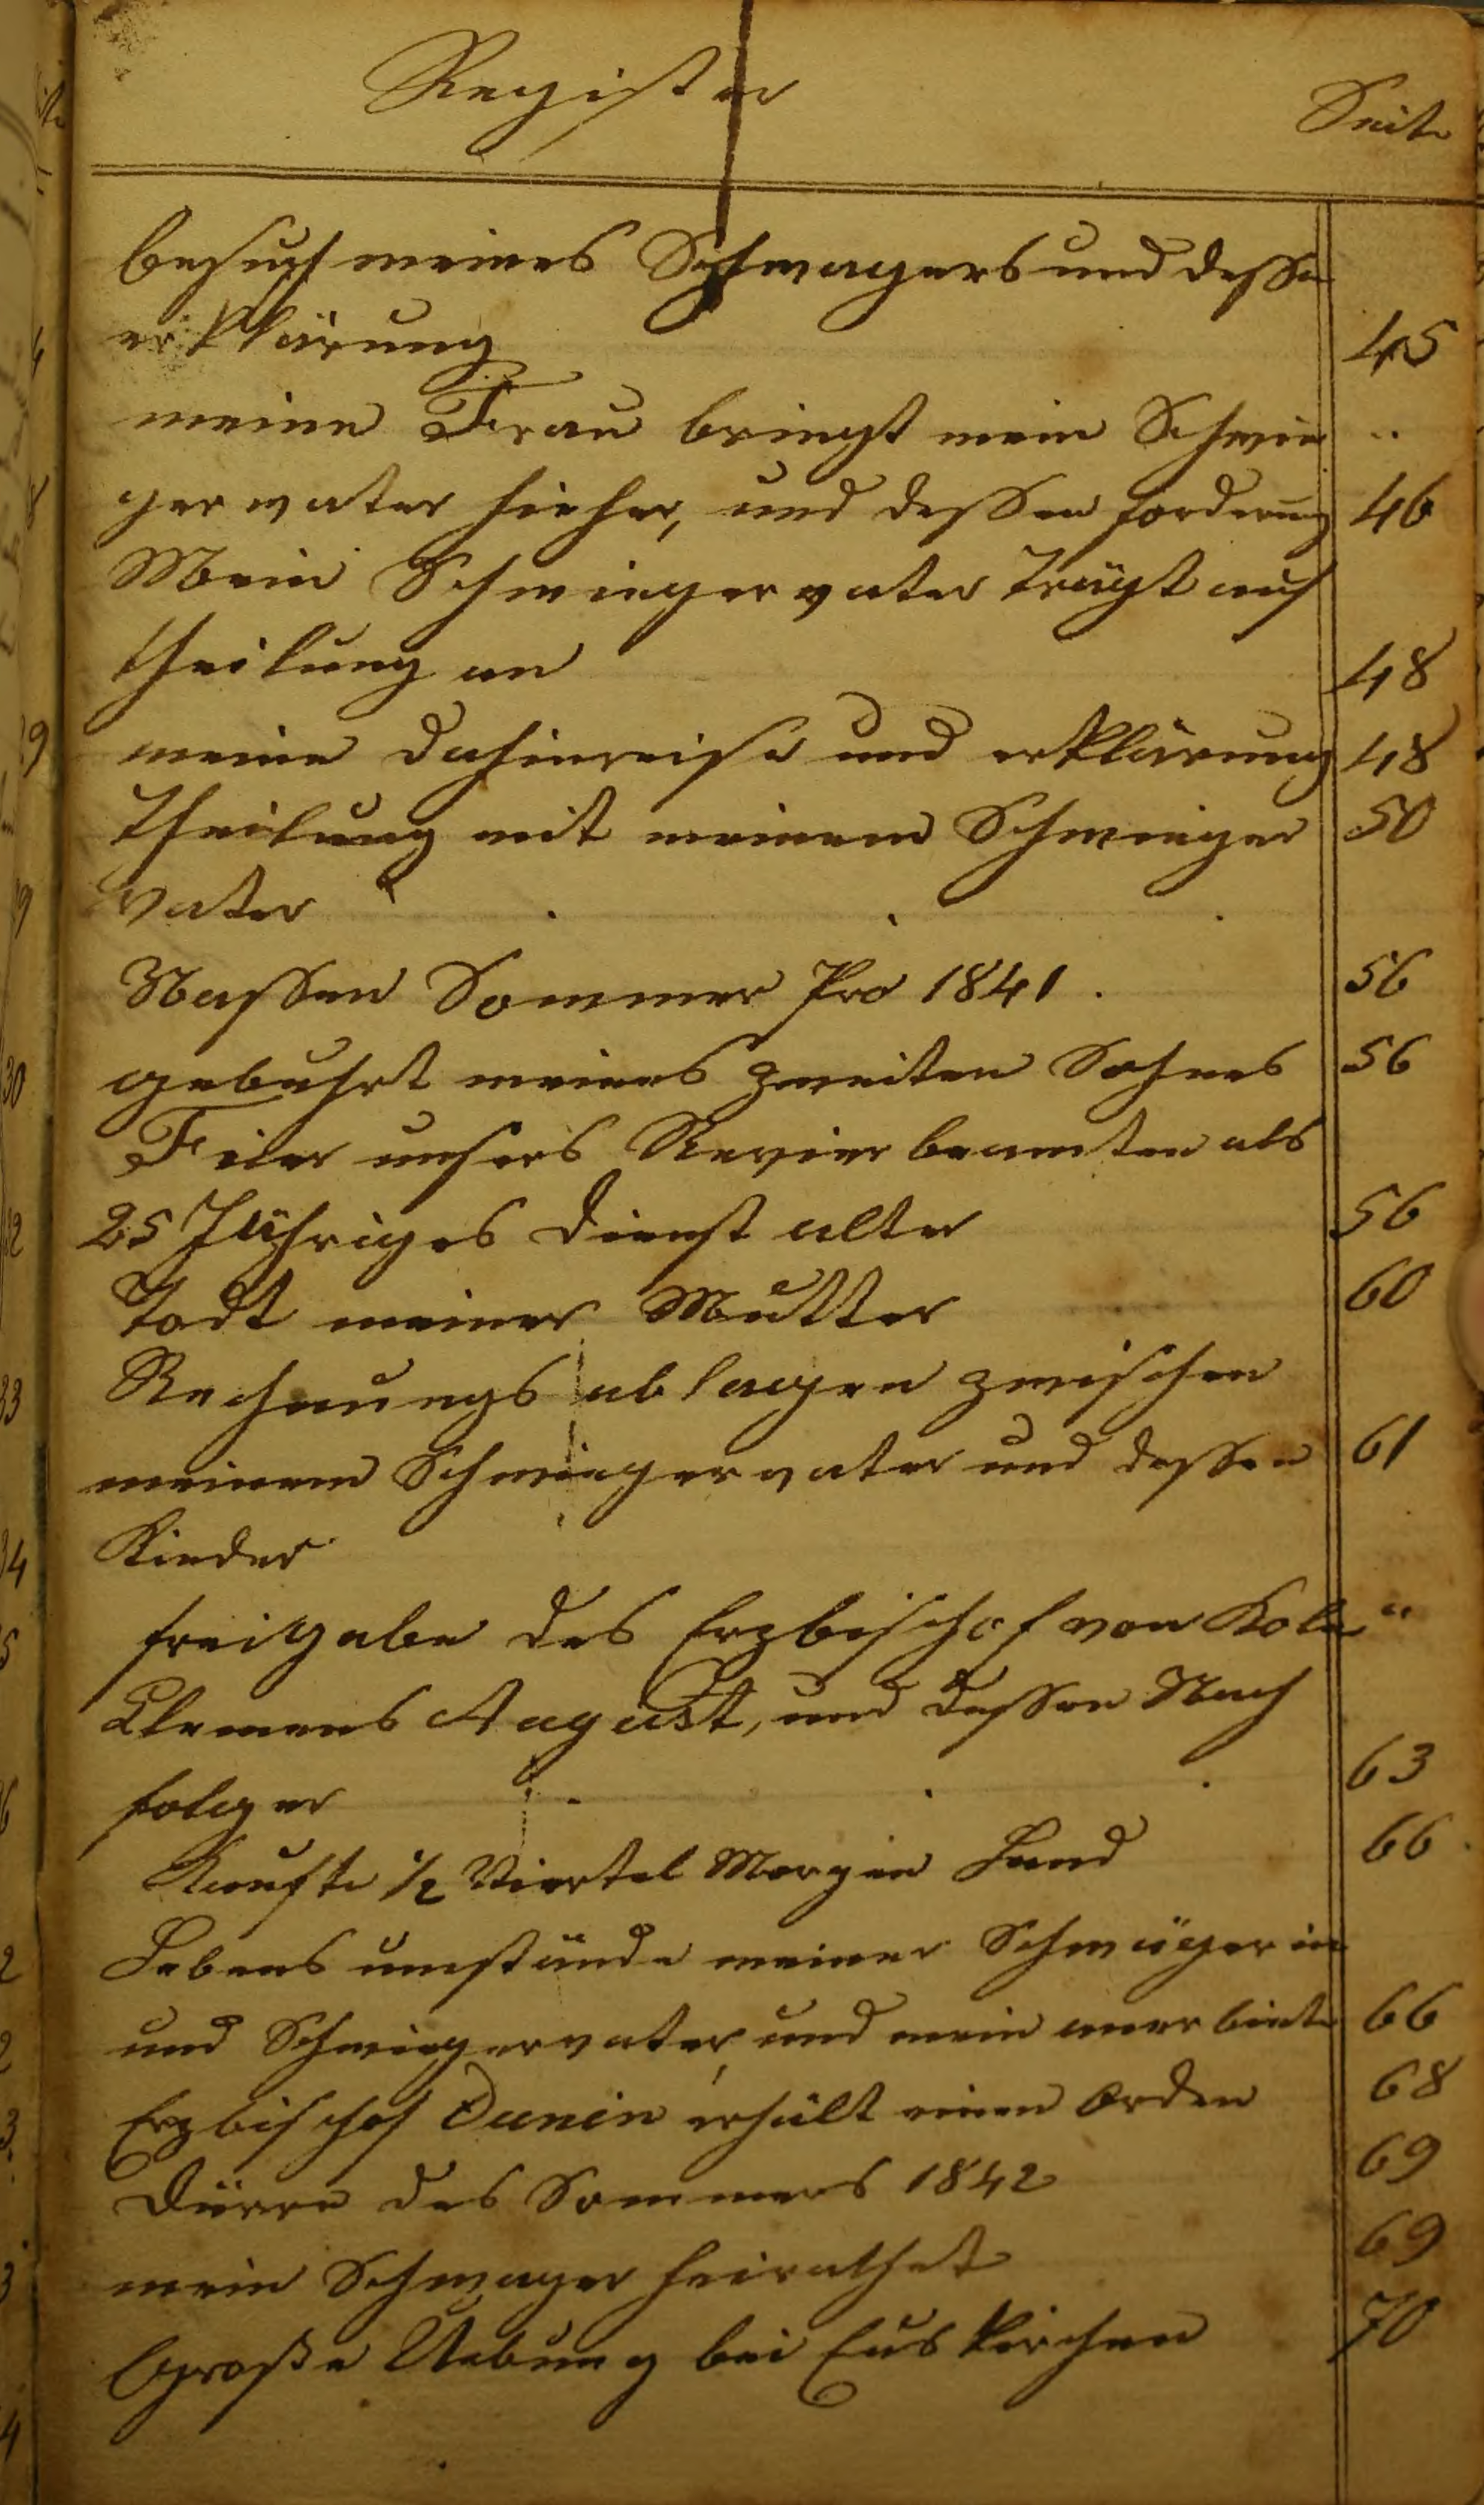 Register
Seite
besuch meines Schwagers und dessen
erklärung 45
meine Frau bringt mein Schwie "
gervater hieher, und dessen forderung 46
Mein Schwiegervater trägt auf
theilung an 48
meine dahinreise und erklärung 48
theilung mit meinem Schwieger 50
vater
Nassen Sommer Pro 1841. 56
gebuhrt meines zweiten Sohnes 56
Feier unsers Revierbeamten als
25 Jähriges dienst alter 56
Todt meiner Mutter 60
Rechnungs ablagen zwischen
meinem Schwiegervater und dessen 61
Kinder
freigabe des Erzbischof von Köln "
Clemens August, und dessen Nach
folger 63
Kaufte 1/2 Viertel Morgen Land 66
Lebens umstände meiner Schwägerin
und Schwiegervater, und mein anerbiete 66
Erzbischof Dunin erhält einen Orden 68
dürre des Sommers 1842 69
mein Schwager heirathet 69
Große Uebung bei Euskirchen 70